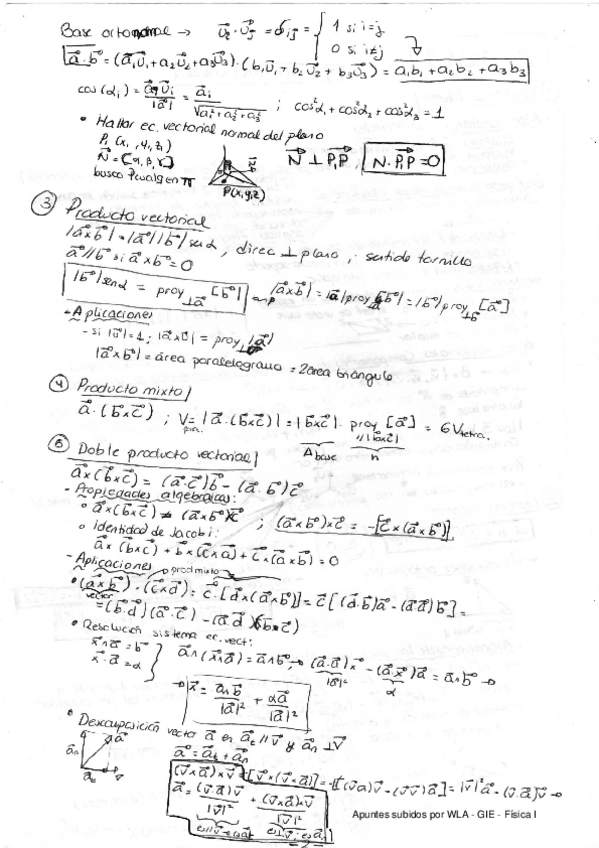 Base ortonormal → u⃗ᵢ·u⃗ⱼ = δᵢⱼ = { 1 si i=j
0 si i≠j
a⃗·b⃗ = (a₁u⃗₁+a₂u⃗₂+a₃u⃗₃)·(b₁u⃗₁+b₂u⃗₂+b₃u⃗₃) = a₁b₁+a₂b₂+a₃b₃
; cos²α₁+cos²α₂+cos²α₃=1
• Hallar ec. vectorial normal del plano
P₁ (x₁, y₁, z₁)
N⃗ = (α, β, γ)
N⃗ ⊥ P₁P , N⃗·P₁P=0
busco P cualq en π
P(x,y,z)
③ Producto vectorial
|a⃗×b⃗| = |a⃗||b⃗| senα, direc ⊥ plano ; sentido tornillo
a⃗//b⃗ si a⃗×b⃗=0
|b⃗|senα = proy⊥a⃗ [b⃗] → |a⃗×b⃗| = |a⃗|proy⊥a⃗[b⃗] = |b⃗|proy⊥b⃗[a⃗]
- Aplicaciones
|a⃗×b⃗| = área paralelogramo = 2área triángulo
④ Producto mixto
a⃗·(b⃗×c⃗) ; V = |a⃗·(b⃗×c⃗)| = |b⃗×c⃗|· proy [a⃗] = 6Vtetra.
//|b⃗×c⃗|
Abase h
⑤ Doble producto vectorial
a⃗×(b⃗×c⃗) = (a⃗·c⃗)b⃗ - (a⃗·b⃗)c⃗
- Propiedades algebráicas:
• a⃗×(b⃗×c⃗) ≠ (a⃗×b⃗)×c⃗ ; (a⃗×b⃗)×c⃗ = -[c⃗×(a⃗×b⃗)]
• identidad de Jacobi:
a⃗×(b⃗×c⃗)+b⃗×(c⃗×a⃗)+c⃗×(a⃗×b⃗)=0
- Aplicaciones → prod mixto
• (a⃗×b⃗)·(c⃗×d⃗) = c⃗·[d⃗×(a⃗×b⃗)] = c⃗[(d⃗·b⃗)a⃗ - (d⃗·a⃗)b⃗] =
vector
= (b⃗·d⃗)(a⃗·c⃗) - (a⃗·d⃗)(b⃗·c⃗)
• Resolución sistema ec. vect:
x⃗∧a⃗ = b⃗
x⃗·a⃗ = α
a⃗∧(x⃗∧a⃗) = a⃗∧b⃗ → (a⃗·a⃗)x⃗ - (a⃗·x⃗)a⃗ = a⃗∧b⃗ →
|a⃗|² α
→ x⃗ = a⃗∧b⃗/|a⃗|² + αa⃗/|a⃗|²
• Descomposición vector a⃗ en a⃗t // v⃗ y a⃗n ⊥ v⃗
a⃗ = a⃗t + a⃗n
(v⃗×a⃗)×v⃗ = -[v⃗×(v⃗×a⃗)] = -[(v⃗·a⃗)v⃗ - (v⃗·v⃗)a⃗] = |v⃗|²a⃗ - (v⃗·a⃗)v⃗ →
a⃗ = (v⃗·a⃗)v⃗/|v⃗|² + (v⃗×a⃗)×v⃗/|v⃗|²
Apuntes subidos por WLA - GIE - Física I